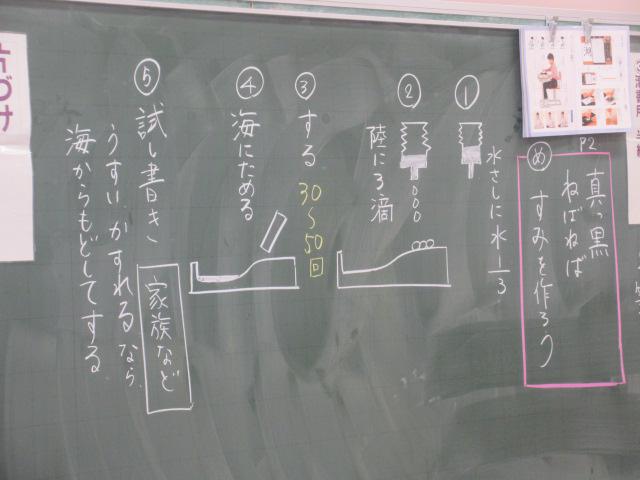 P2
め
真っ黒
ねばねば
すみを作ろう
①
水さしに水1/3
②
陸に3滴
③
する 30〜50回
④
海にためる
⑤
試し書き
家族など
うすい、かすれるなら、
海からもどしてする
片づけ